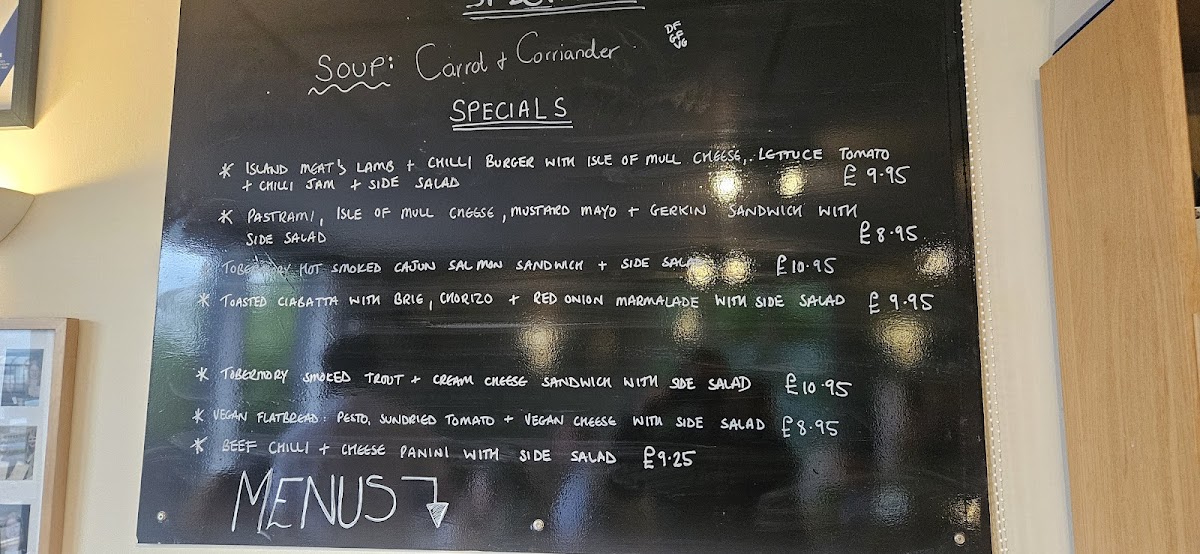 SOUP: Carrot + Corriander.
DF
GF
VG
SPECIALS
* ISLAND MEAT'S LAMB + CHILLI BURGER WITH ISLE OF MULL CHEESE, LETTUCE TOMATO
+ CHILLI JAM + SIDE SALAD £9.95
* PASTRAMI, ISLE OF MULL CHEESE, MUSTARD MAYO + GERKIN SANDWICH WITH
SIDE SALAD £8.95
* TOBERMORY HOT SMOKED CAJUN SALMON SANDWICH + SIDE SALAD £10.95
* TOASTED CIABATTA WITH BRIE, CHORIZO + RED ONION MARMALADE WITH SIDE SALAD £9.95
* TOBERMORY SMOKED TROUT + CREAM CHEESE SANDWICH WITH SIDE SALAD £10.95
* VEGAN FLATBREAD: PESTO, SUNDRIED TOMATO + VEGAN CHEESE WITH SIDE SALAD £8.95
* BEEF CHILLI + CHEESE PANINI WITH SIDE SALAD £9.25
MENUS